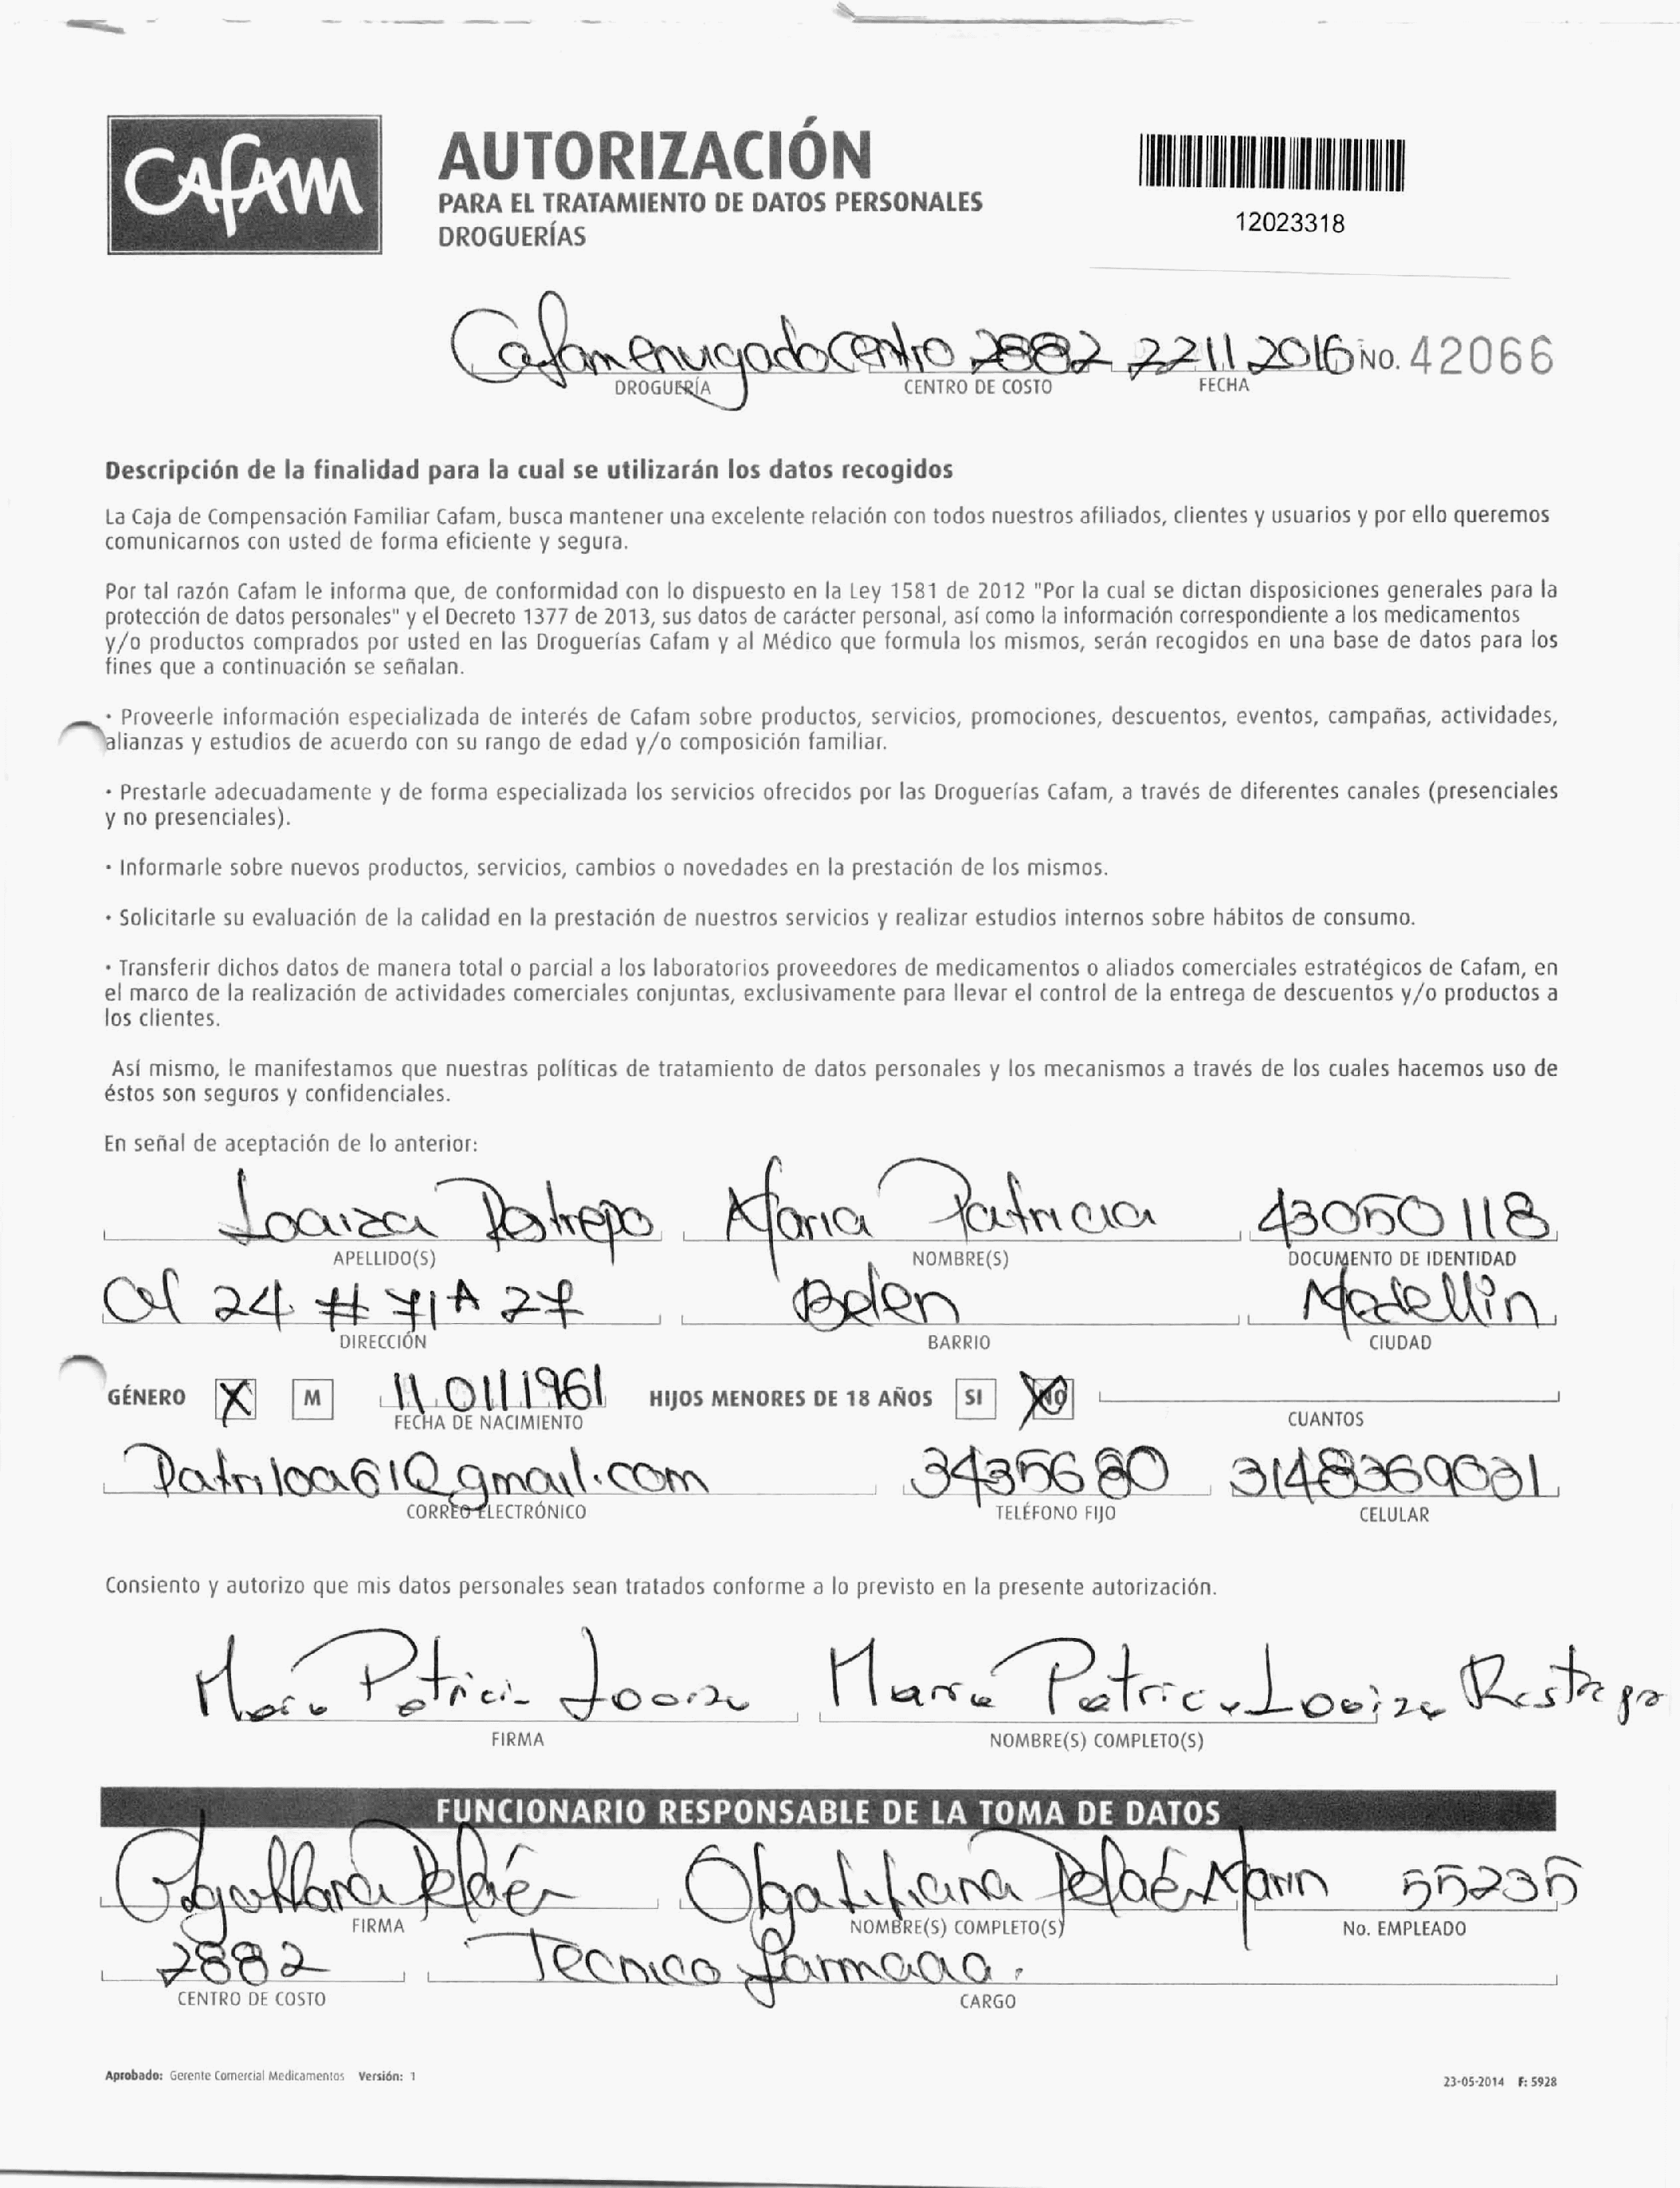 CAFAM
AUTORIZACIÓN
PARA EL TRATAMIENTO DE DATOS PERSONALES
DROGUERÍAS
12023318
Cafam envigado centro 2882 22 11 2016 NO. 42066
DROGUERÍA CENTRO DE COSTO FECHA
Descripción de la finalidad para la cual se utilizarán los datos recogidos
La Caja de Compensación Familiar Cafam, busca mantener una excelente relación con todos nuestros afiliados, clientes y usuarios y por ello queremos
comunicarnos con usted de forma eficiente y segura.
Por tal razón Cafam le informa que, de conformidad con lo dispuesto en la Ley 1581 de 2012 "Por la cual se dictan disposiciones generales para la
protección de datos personales" y el Decreto 1377 de 2013, sus datos de carácter personal, así como la información correspondiente a los medicamentos
y/o productos comprados por usted en las Droguerías Cafam y al Médico que formula los mismos, serán recogidos en una base de datos para los
fines que a continuación se señalan.
· Proveerle información especializada de interés de Cafam sobre productos, servicios, promociones, descuentos, eventos, campañas, actividades,
alianzas y estudios de acuerdo con su rango de edad y/o composición familiar.
· Prestarle adecuadamente y de forma especializada los servicios ofrecidos por las Droguerías Cafam, a través de diferentes canales (presenciales
y no presenciales).
· Informarle sobre nuevos productos, servicios, cambios o novedades en la prestación de los mismos.
· Solicitarle su evaluación de la calidad en la prestación de nuestros servicios y realizar estudios internos sobre hábitos de consumo.
· Transferir dichos datos de manera total o parcial a los laboratorios proveedores de medicamentos o aliados comerciales estratégicos de Cafam, en
el marco de la realización de actividades comerciales conjuntas, exclusivamente para llevar el control de la entrega de descuentos y/o productos a
los clientes.
Así mismo, le manifestamos que nuestras políticas de tratamiento de datos personales y los mecanismos a través de los cuales hacemos uso de
éstos son seguros y confidenciales.
En señal de aceptación de lo anterior:
Loaiza Restrepo Maria Patricia 43050118
APELLIDO(S) NOMBRE(S) DOCUMENTO DE IDENTIDAD
Cl 24 # 71A 27 Belen Medellin
DIRECCIÓN BARRIO CIUDAD
GÉNERO X M 11 01 1961 HIJOS MENORES DE 18 AÑOS SI NO
FECHA DE NACIMIENTO CUANTOS
Patriloa61@gmail.com 3435680 3148369031
CORREO ELECTRÓNICO TELÉFONO FIJO CELULAR
Consiento y autorizo que mis datos personales sean tratados conforme a lo previsto en la presente autorización.
Maria Patricia Loaiza Maria Patricia Loaiza Restrepo
FIRMA NOMBRE(S) COMPLETO(S)
FUNCIONARIO RESPONSABLE DE LA TOMA DE DATOS
Olga Liliana Peláez Marin 55235
FIRMA NOMBRE(S) COMPLETO(S) No. EMPLEADO
2882 Tecnico farmacia.
CENTRO DE COSTO CARGO
Aprobado: Gerente Comercial Medicamentos Versión: 1
23-05-2014 F: 5928